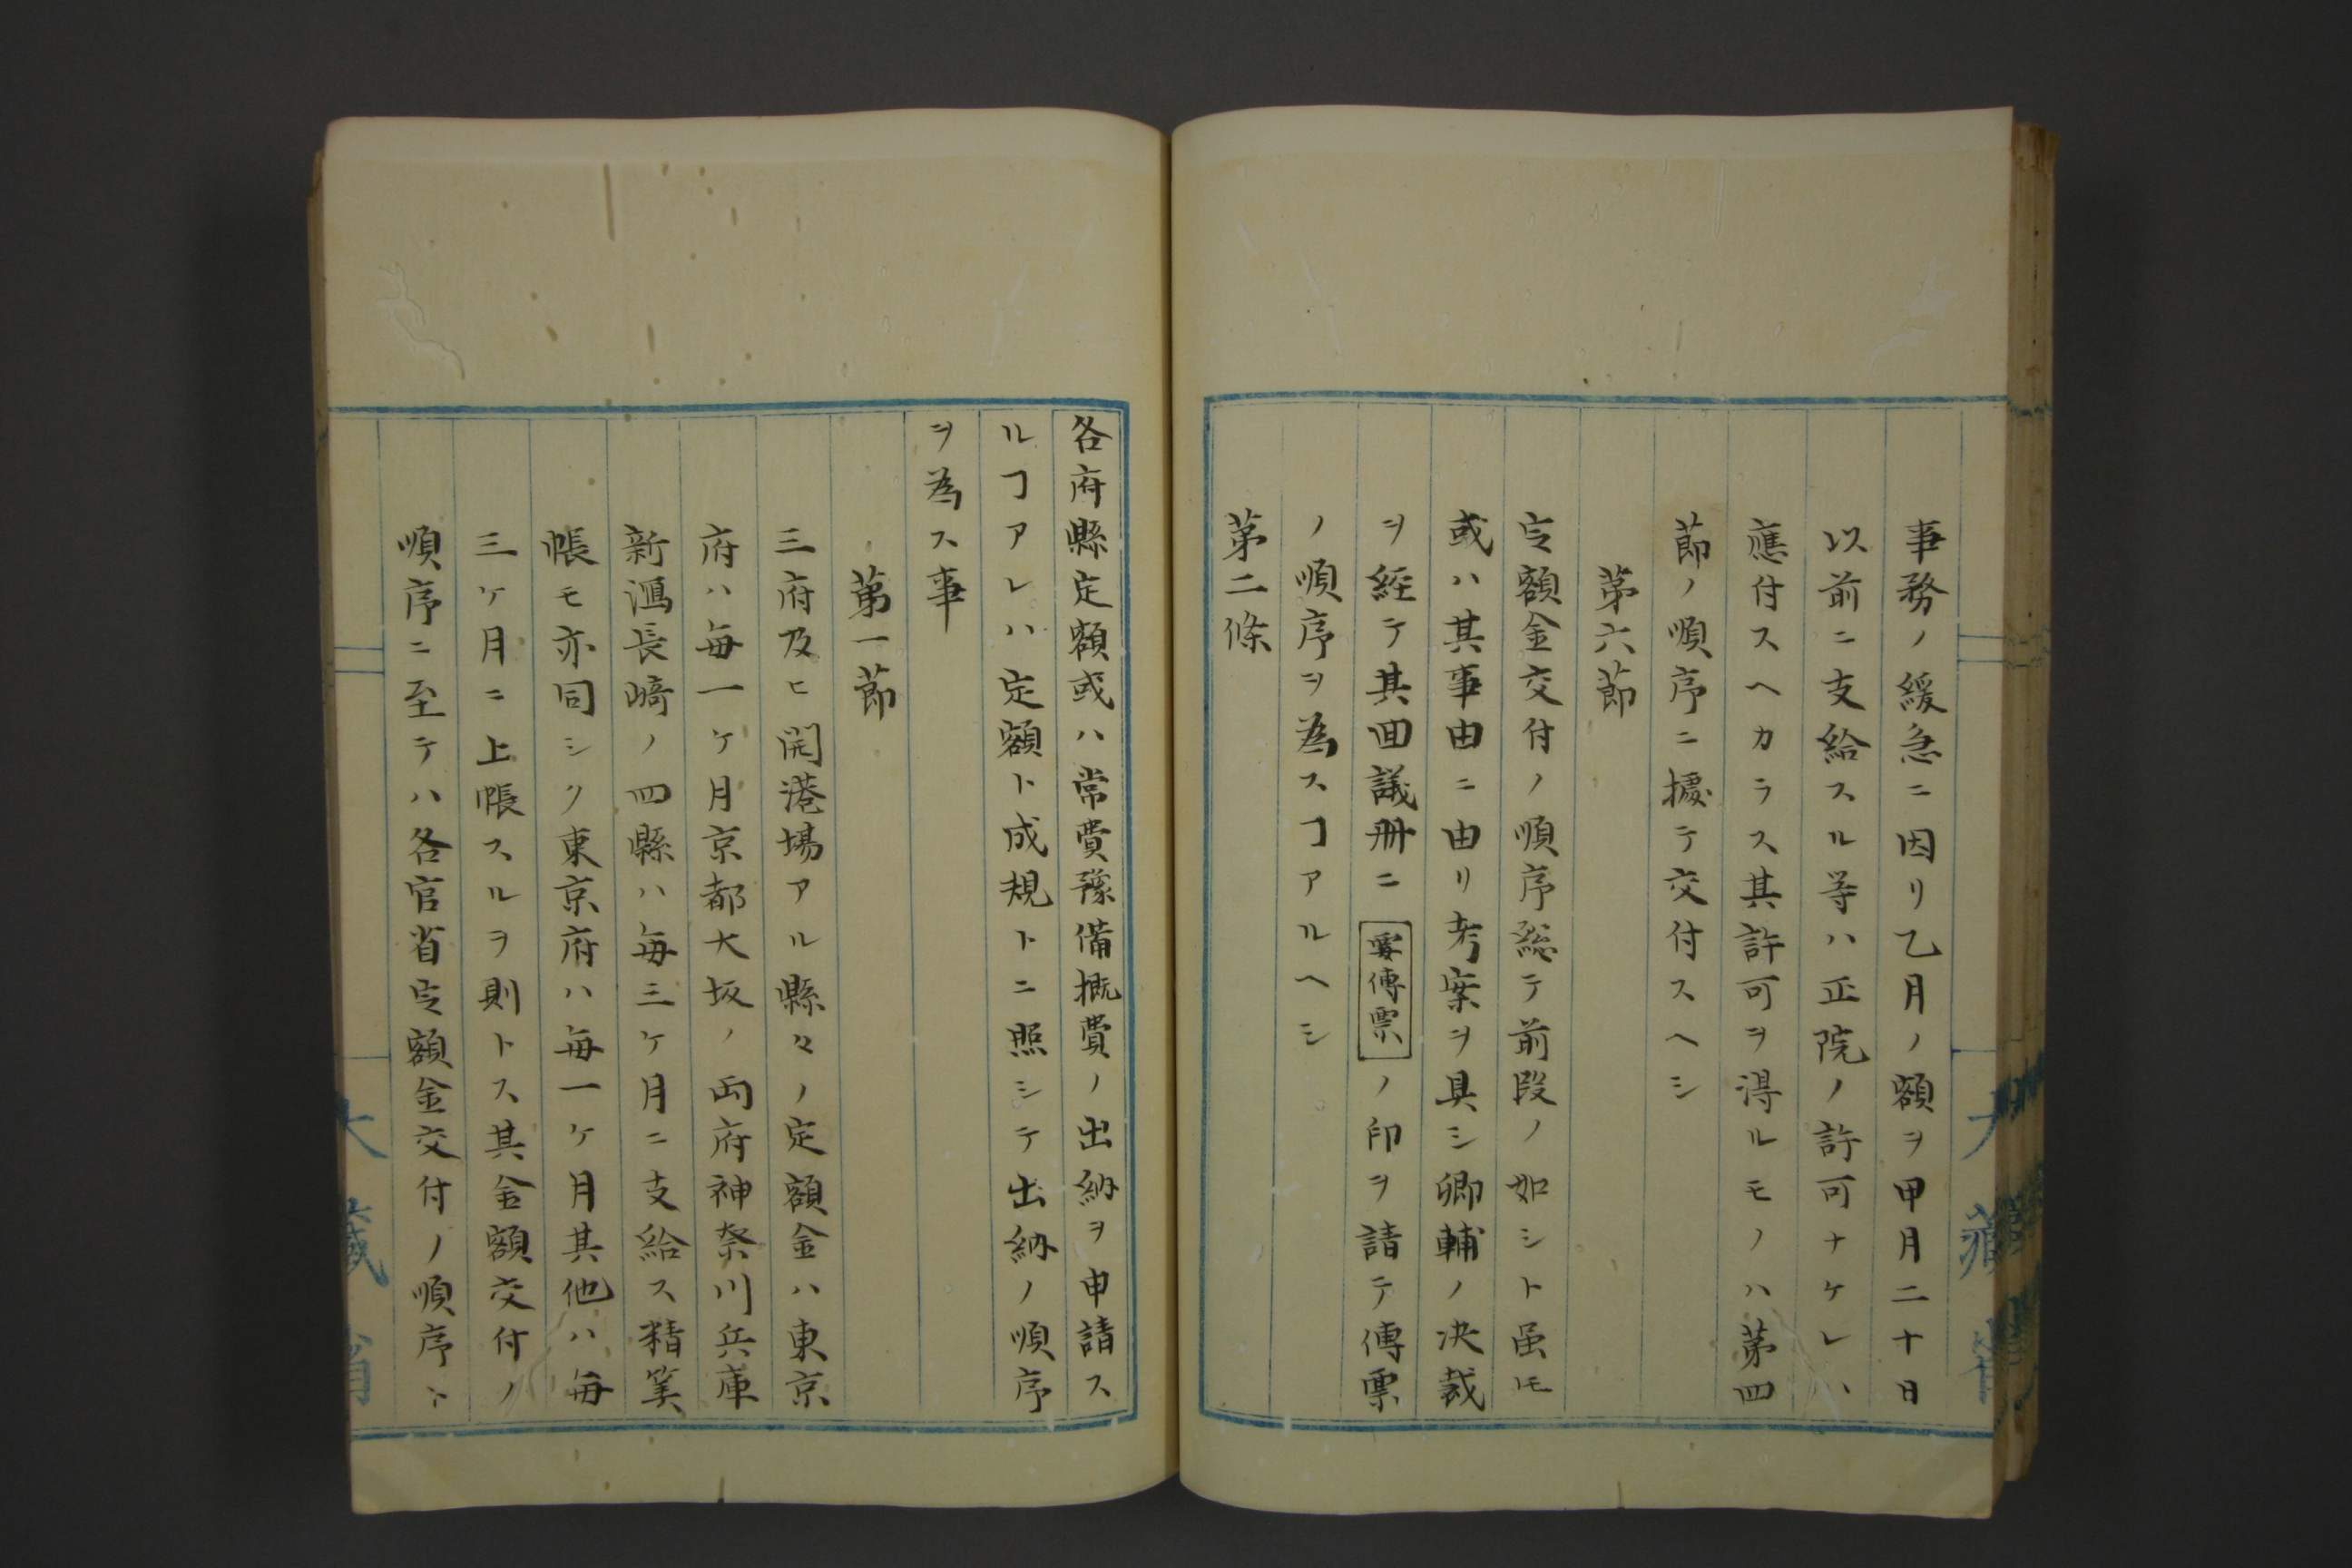 事務ノ緩急ニ因リ乙月ノ額ヲ甲月二十日
以前ニ支給スル等ハ正院ノ許可ナケレハ
應付スヘカラス其許可ヲ得ルモノハ第四
節ノ順序ニ據テ交付スヘシ
第六節
定額金交付ノ順序総テ前段ノ如シト虽𪜈
或ハ其事由ニ由リ考案ヲ具シ卿輔ノ决裁
ヲ経テ其回議册ニ要傳票ノ印ヲ請テ傳票
ノ順序ヲ為スヿアルヘシ
第二條
大藏省
各府縣定額或ハ常費豫備概費ノ出納ヲ申請ス
ルヿアレハ定額ト成規トニ照シテ出納ノ順序
ヲ為ス事
第一節
三府及ヒ開港場アル縣々ノ定額金ハ東京
府ハ毎一ケ月京都大坂ノ両府神奈川兵庫
新潟長崎ノ四縣ハ毎三ケ月ニ支給ス精筭
帳モ亦同シク東京府ハ毎一ケ月其他ハ毎
三ケ月ニ上帳スルヲ則トス其金額交付ノ
順序ニ至テハ各官省定額金交付ノ順序ト
大藏省